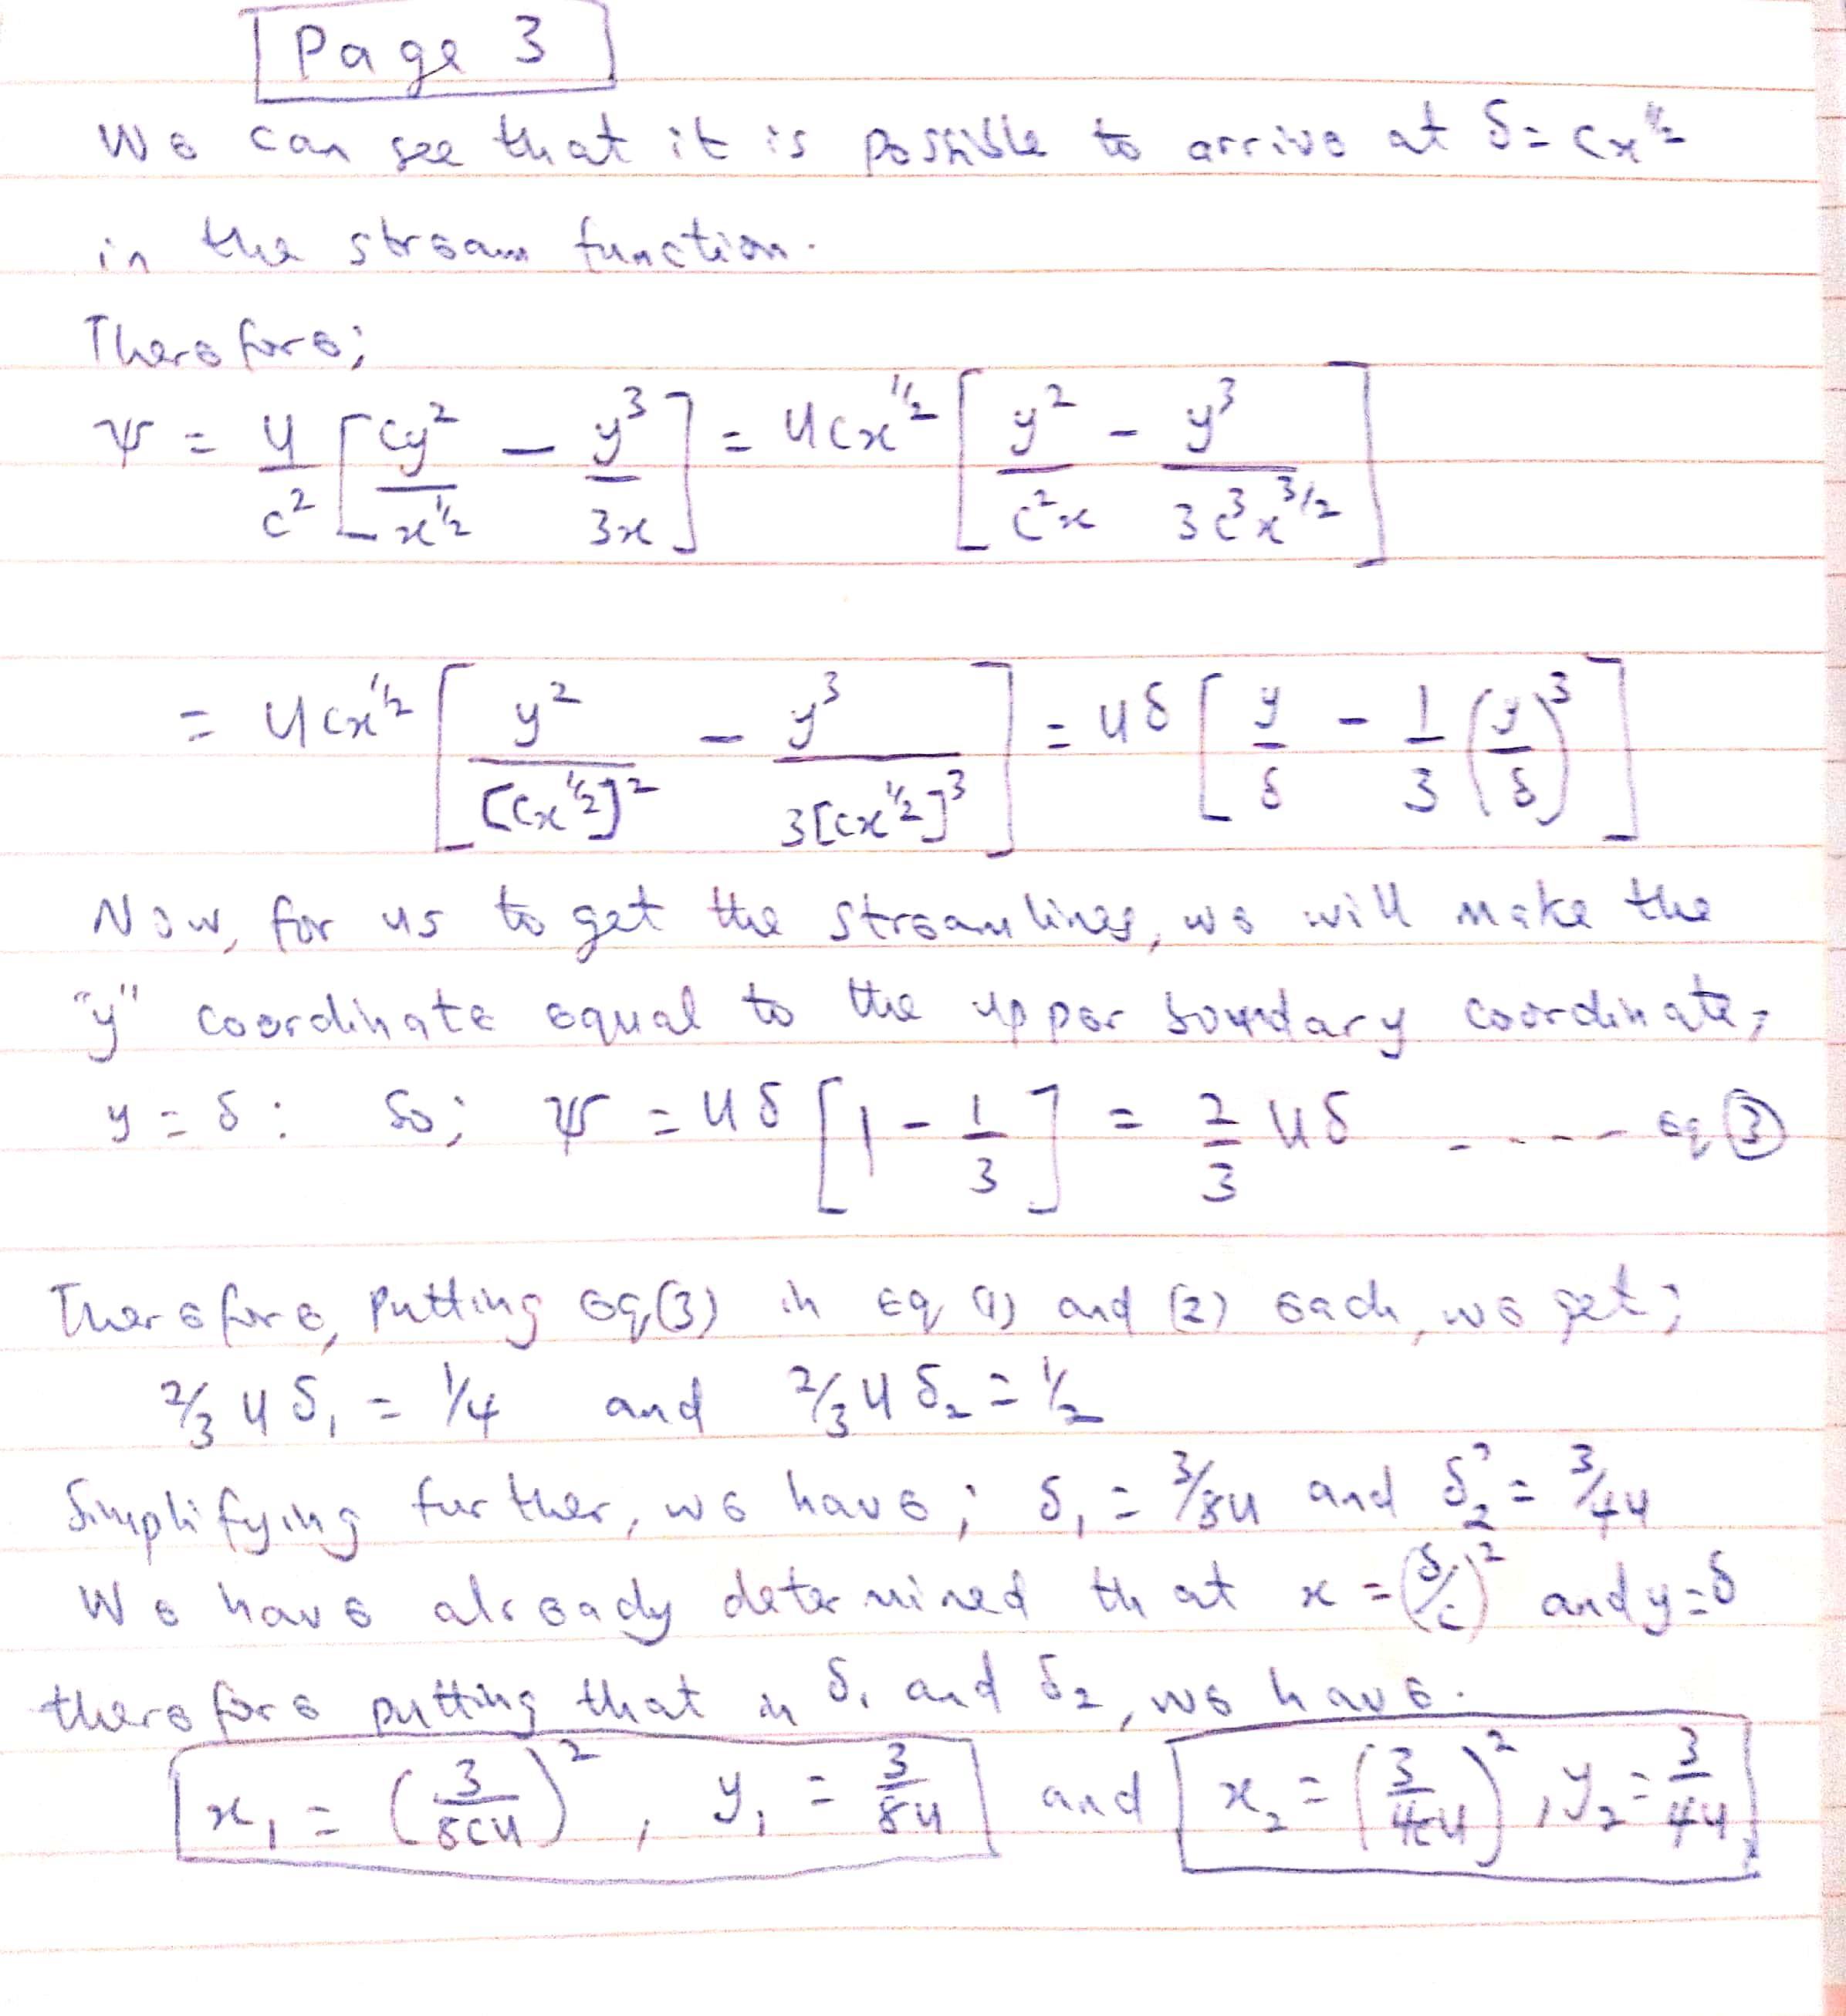 Page 3
We can see that it is possible to arrive at δ = cx^1/2
in the stream function.
Therefore;
ψ = U/c² [cy²/x^1/2 − y³/3x] = Ucx^1/2 [y²/c²x − y³/3c³x^3/2]
= Ucx^1/2 [y²/[cx^1/2]² − y³/3[cx^1/2]³] = Uδ [y/δ − 1/3 (y/δ)³]
Now, for us to get the streamlines, we will make the
"y" coordinate equal to the upper boundary coordinate,
y = δ : So; ψ = Uδ [1 − 1/3] = 2/3 Uδ ..... eq ③
Therefore, putting eq(3) in eq (1) and (2) each, we get;
2/3 Uδ₁ = 1/4 and 2/3 Uδ₂ = 1/2
Simplifying further, we have; δ₁ = 3/8U and δ₂ = 3/4U
We have already determined that x = (δ/c)² and y = δ
therefore putting that in δ₁ and δ₂, we have.
x₁ = (3/8cU)², y₁ = 3/8U and x₂ = (3/4cU)², y₂ = 3/4U